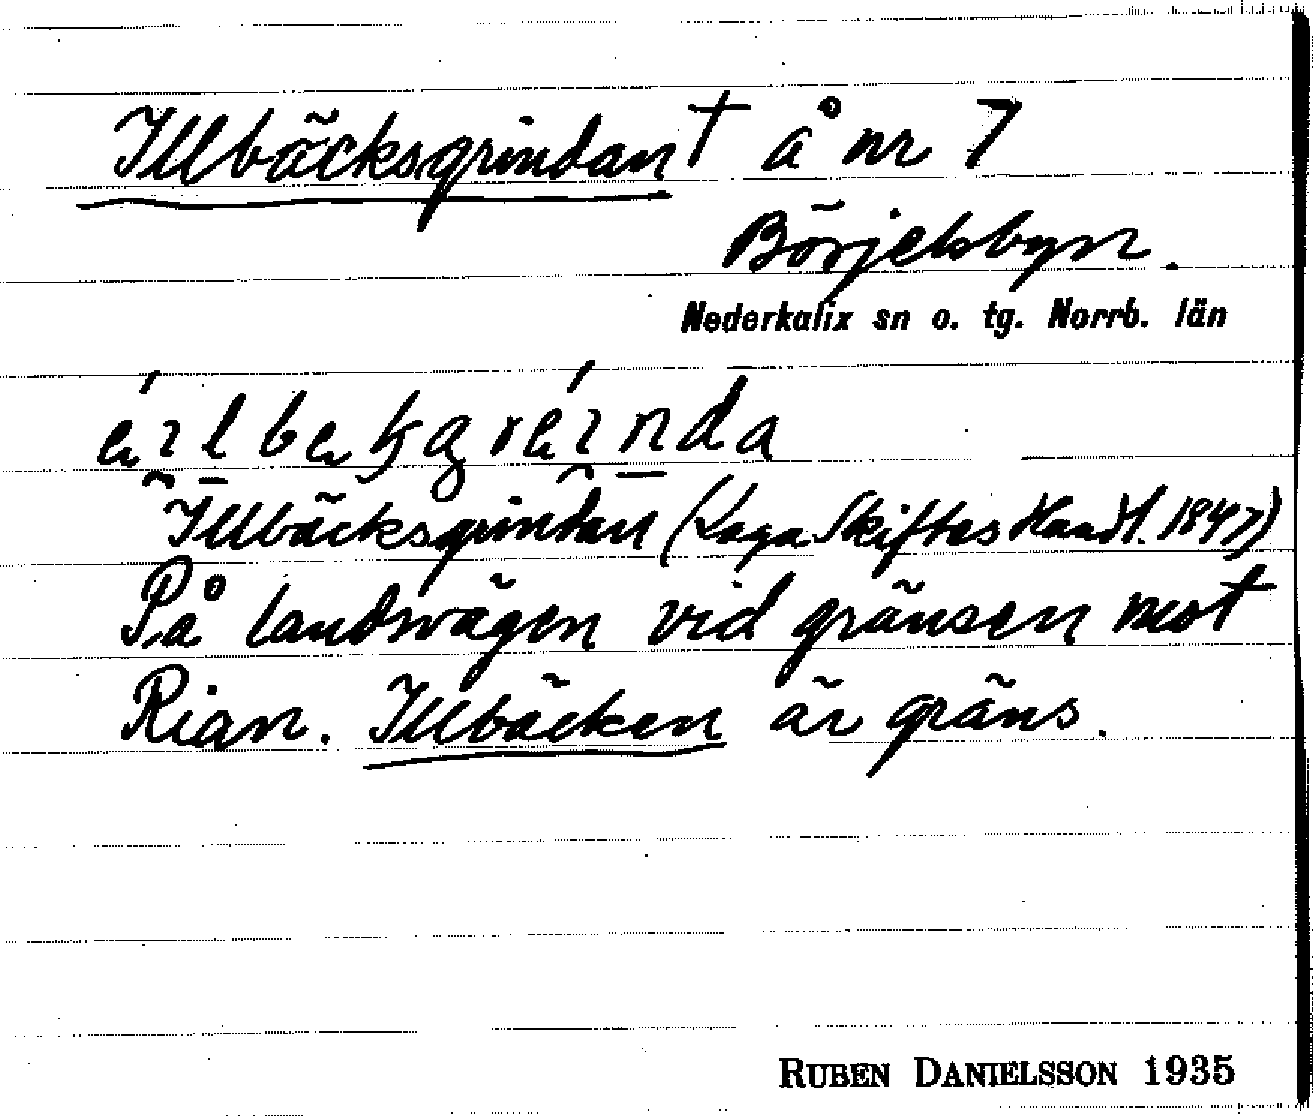 Illbäcksgrindan † å nr 7
Börjelsbyn.
Nederkalix sn o. tg. Norrb. län
Illbäcksgrindan (Laga Skiftes Handl. 1847)
På landsvägen vid gränsen mot
Rian. Illbäcken är gräns.
RUBEN DANIELSSON 1935